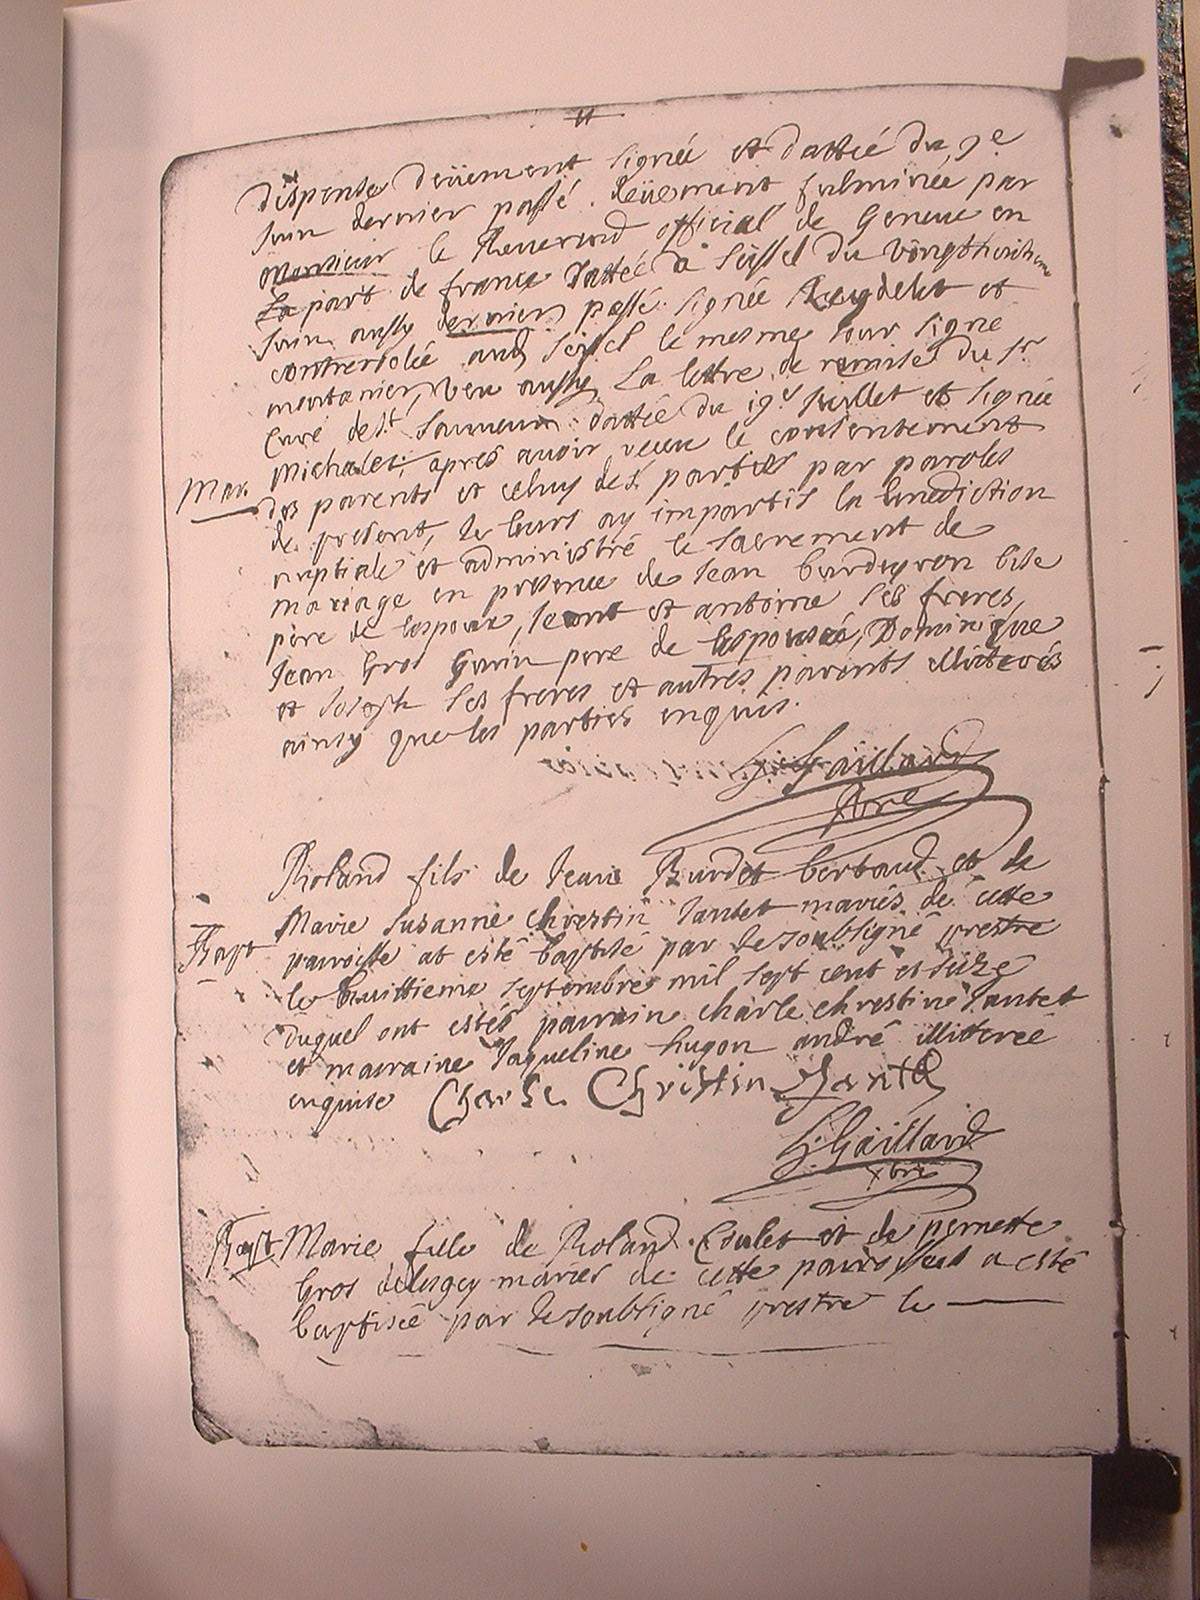 dispense deüement signée et dattée du 9e
Juin dernier passé. deüement fulminée par
Monsieur le Reverend official de Geneve en
La part de france dattée à seissel du
Juin aussy dernier passé signée Reydelet et
contrerolée aud seissel le mesme jour signé
montanier, veu aussy La lettre de remise du sr
Curé de st dattée du 19e Juillet et signée
Michalet, apres avoir receu le consentement
Mar. des parents et celuy des d. parties par paroles
de present, Je leurs ay impartis la benediction
nuptiale et administré le sacrement de
mariage en presence de Jean
pere de lespoux, et antoine ses freres,
Jean Gros pere de lespousée, Dominique
et Joseph ses freres et autres parents illiterés
ainsy que les parties enquis.
Gaillard
pbre
Roland fils de Jean Burdet bertaud et de
Marie Susanne Chrestin Jantet mariés de cette
Bapt paroisse at esté baptisé par Je soubsigné prestre
le huittieme septembre mil sept cent et seize
duquel ont estés parrain charle chrestin Jantet
et marraine Jaqueline hugon andré illiterée
enquise Charle Christin Jantet
Gaillard
pbre
Bapt Marie fille de Roland Coulet et de pernette
Gros mariés de cette paroisse a esté
baptisée par Je soubsigné prestre le